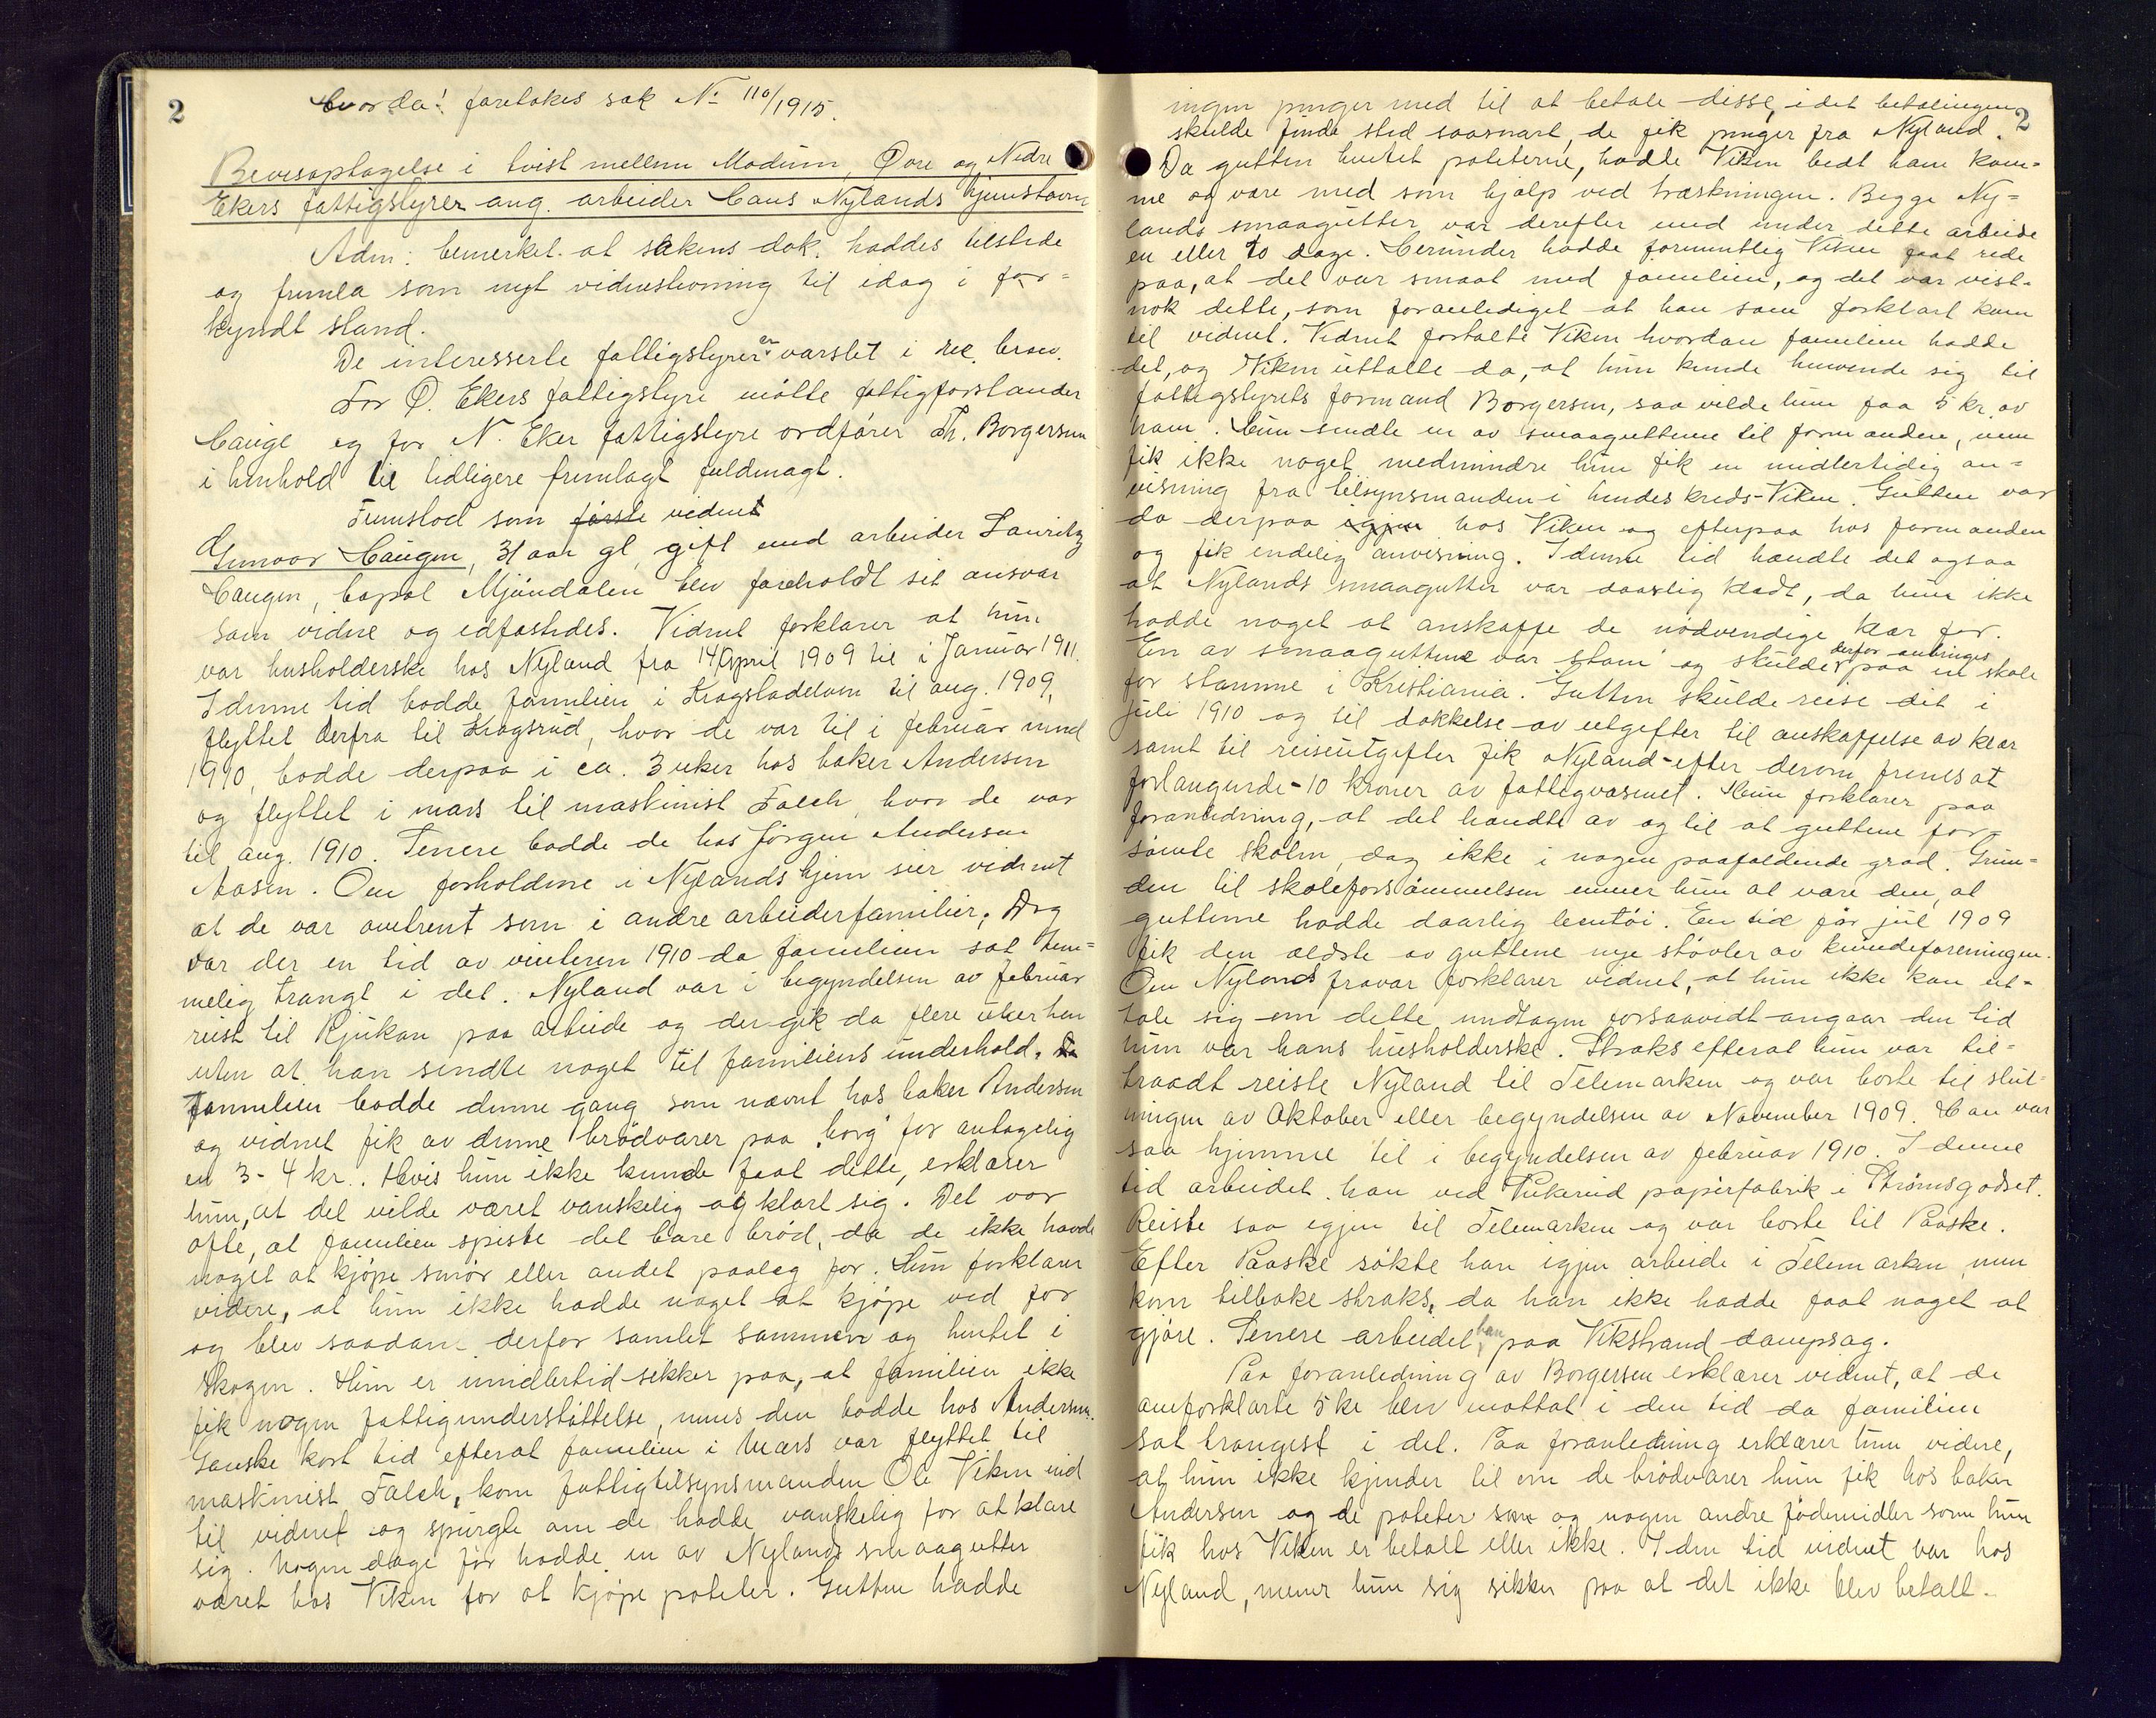 2
Hvorda! foretokes sak No 110/1915.
Bevisoptagelse i tvist mellem Modum, Øvre og Nedre
Ekers fattigstyrer ang. arbeider Hans Nylands hjemstavn
Adm: bemerket at sakens dok. haddes tilstede
og fremla som nyt vidnestevning til idag i for=
kyndt stand.
De interesserte fattigstyrer er varslet i rek. brev.
For Ø. Ekers fattigstyre møtte fattigforstander
Hauge og for N. Eker fattigstyre ordfører Th. Borgersen
i henhold til tidligere fremlagt fuldmagt.
Fremstod som første vidnet
Gunvor Haugen, 31 aar gl, gift med arbeider Lauritz
Haugen, bopæl Mjøndalen blev foreholdt sit ansvar
som vidne og edfæstedes. Vidnet forklarer at hun
var husholderske hos Nyland fra 14 April 1909 til i Januar 1911.
I denne tid bodde familien i Krogstadelven til aug. 1909,
flyttet derfra til Krogsrud, hvor de var til i februar mnd
1910, bodde derpaa i ca. 3 uker hos baker Andersen
og flyttet i mars til maskinist Falch, hvor de var
til aug. 1910. Senere bodde de hos Jørgen Andersen
Aasen. Om forholdene i Nylands hjem sier vidnet
at de var omtrent som i andre arbeiderfamilier. Dog
var der en tid av vinteren 1910 da familien sat tem=
melig trangt i det. Nyland var i begyndelsen av februar
reist til Rjukan paa arbeide og der gik da flere uker hen
uten at han sendte noget til familiens underhold. Da
Familien bodde denne gang som nævnt hos baker Andersen
og vidnet fik av denne brødvarer paa borg for antagelig
en 3-4 kr.. Hvis hun ikke kunde faat dette, erklærer
hun, at det vilde været vanskelig at klart sig. Det var
ofte, at familien spiste det bare brød, da de ikke havde
noget at kjøpe smør eller andet paalæg for. Hun forklarer
videre, at hun ikke hadde noget at kjøpe ved for
og blev saadan derfor samlet sammen og hentet i
skogen. Hun er imidlertid sikker paa, at familien ikke
fik nogen fattigunderstøttelse, mens den bodde hos Andersen.
Ganske kort tid efterat familien i Mars var flyttet til
maskinist Falch, kom fattigtilsynsmanden Ole Viken ind
til vidnet og spurgte om de hadde vanskelig for at klare
sig. Nogen dage før hadde en av Nylands smaagutter
været hos Viken for at kjøpe poteter. Gutten hadde
2
ingen penger med til at betale disse, idet betalingen
skulde finde sted saasnart de fik penger fra Nyland.
Da gutten hentet poteterne, hadde Viken bedt ham kom=
me og være med som hjælp ved træskningen. Begge Ny=
lands smaagutter var derefter med under dette arbeide
en eller to dage. Herunder hadde formentlig Viken faat rede
paa, at det var smaat med familien, og det var vist=
nok dette, som foranlediget at han som forklart kom
til vidnet. Vidnet fortalte Viken hvordan familien hadde
det, og Viken uttalte da, at hun kunde henvende sig til
fattigstyrets formand Borgersen, saa vilde hun faa 5 kr. av
ham. Hun sendte en av smaaguttene til formanden, men
fik ikke noget medmindre hun fik en midlertidig an=
visning fra tilsynsmanden i hendes kreds - Viken. Gutten var
da derpaa igjen hos Viken og efterpaa hos formanden
og fik endelig anvisning. I denne tid hændte det ogsaa
at Nylands smaagutter var daarlig klædt, da hun ikke
hadde noget at anskaffe de nødvendige klær for.
En av smaaguttene var stam og skulde derfor anbringes paa en skole
for stamme i Kristiania. Gutten skulde reise dit i
juli 1910 og til dækkelse av utgifter til anskaffelse av klær
samt til reiseutgifter fik Nyland - efter derom fremsat
forlangende - 10 kroner av fattigvæsenet. Hun forklarer paa
foranledning, at det hændte av og til at guttene for=
sømte skolen, dog ikke i nogen paafaldende grad. Grun=
den til skoleforsømmelsen mener hun at være den, at
guttene hadde daarlig bentøi. En tid før jul 1909
fik den ældste av guttene nye støvler av kvindeforeningen.
Om Nylands fravær forklarer vidnet, at hun ikke kan ut=
tale sig om dette undtagen forsaavidt angaar den tid
hun var hans husholderske. Straks efterat hun var til=
traadt reiste Nyland til Telemarken og var borte til slut=
ningen av Oktober eller begyndelsen av November 1909. Han var
saa hjemme til i begyndelsen av februar 1910. I denne
tid arbeidet han ved Pukerud papirfabrik i Strømsgodset.
Reiste saa igjen til Telemarken og var borte til Paaske.
Efter Paaske søkte han igjen arbeide i Telemarken, men
kom tilbake straks, da han ikke hadde faat noget at
gjøre. Senere arbeidet han paa Vikstrand dampsag.
Paa foranledning av Borgersen erklærer vidnet, at de
omforklarte 5 kr blev mottat i den tid da familien
sat trangest i det. Paa foranledning erklærer hun videre,
at hun ikke kjender til om de brødvarer hun fik hos baker
Andersen og de poteter som og nogen andre fødemidler som hun
fik hos Viken er betalt eller ikke. I den tid vidnet var hos
Nyland, mener hun sig sikker paa at det ikke blev betalt.